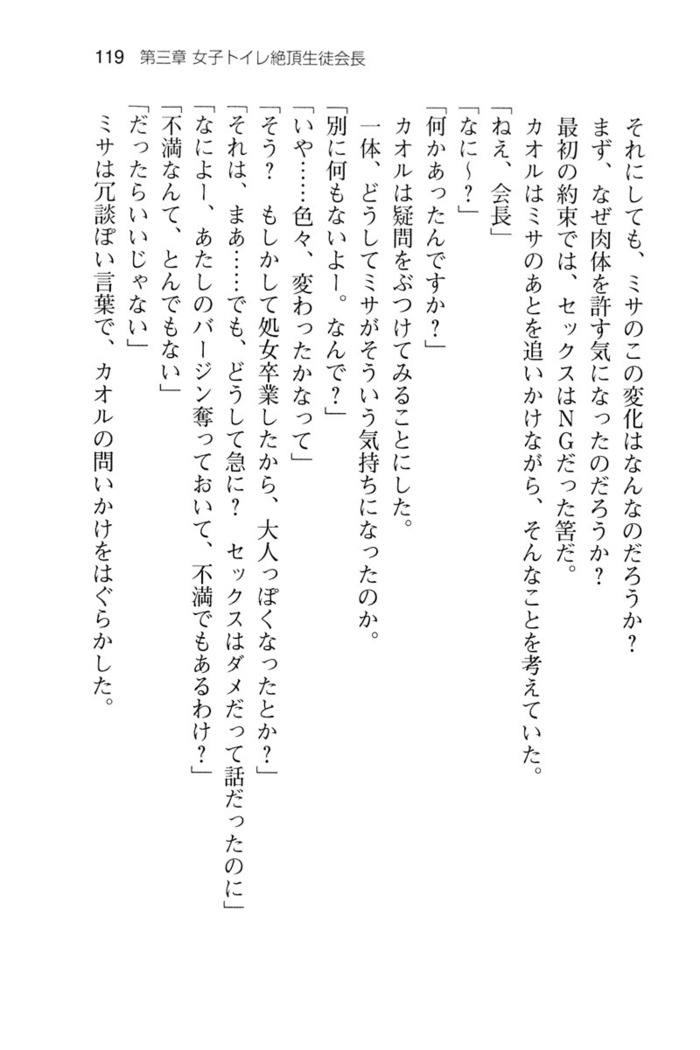 119 第三章 女子トイレ絶頂生徒会長
それにしても、ミサのこの変化はなんなのだろうか？
まず、なぜ肉体を許す気になったのだろうか？
最初の約束では、セックスはNGだった筈だ。
カオルはミサのあとを追いかけながら、そんなことを考えていた。
「ねえ、会長」
「なに～？」
「何かあったんですか？」
カオルは疑問をぶつけてみることにした。
一体、どうしてミサがそういう気持ちになったのか。
「別に何もないよー。なんで？」
「いや……色々、変わったかなって」
「そう？　もしかして処女卒業したから、大人っぽくなったとか？」
「それは、まあ……でも、どうして急に？　セックスはダメだって話だったのに」
「なによー、あたしのバージン奪っておいて、不満でもあるわけ？」
「不満なんて、とんでもない」
「だったらいいじゃない」
ミサは冗談ぽい言葉で、カオルの問いかけをはぐらかした。